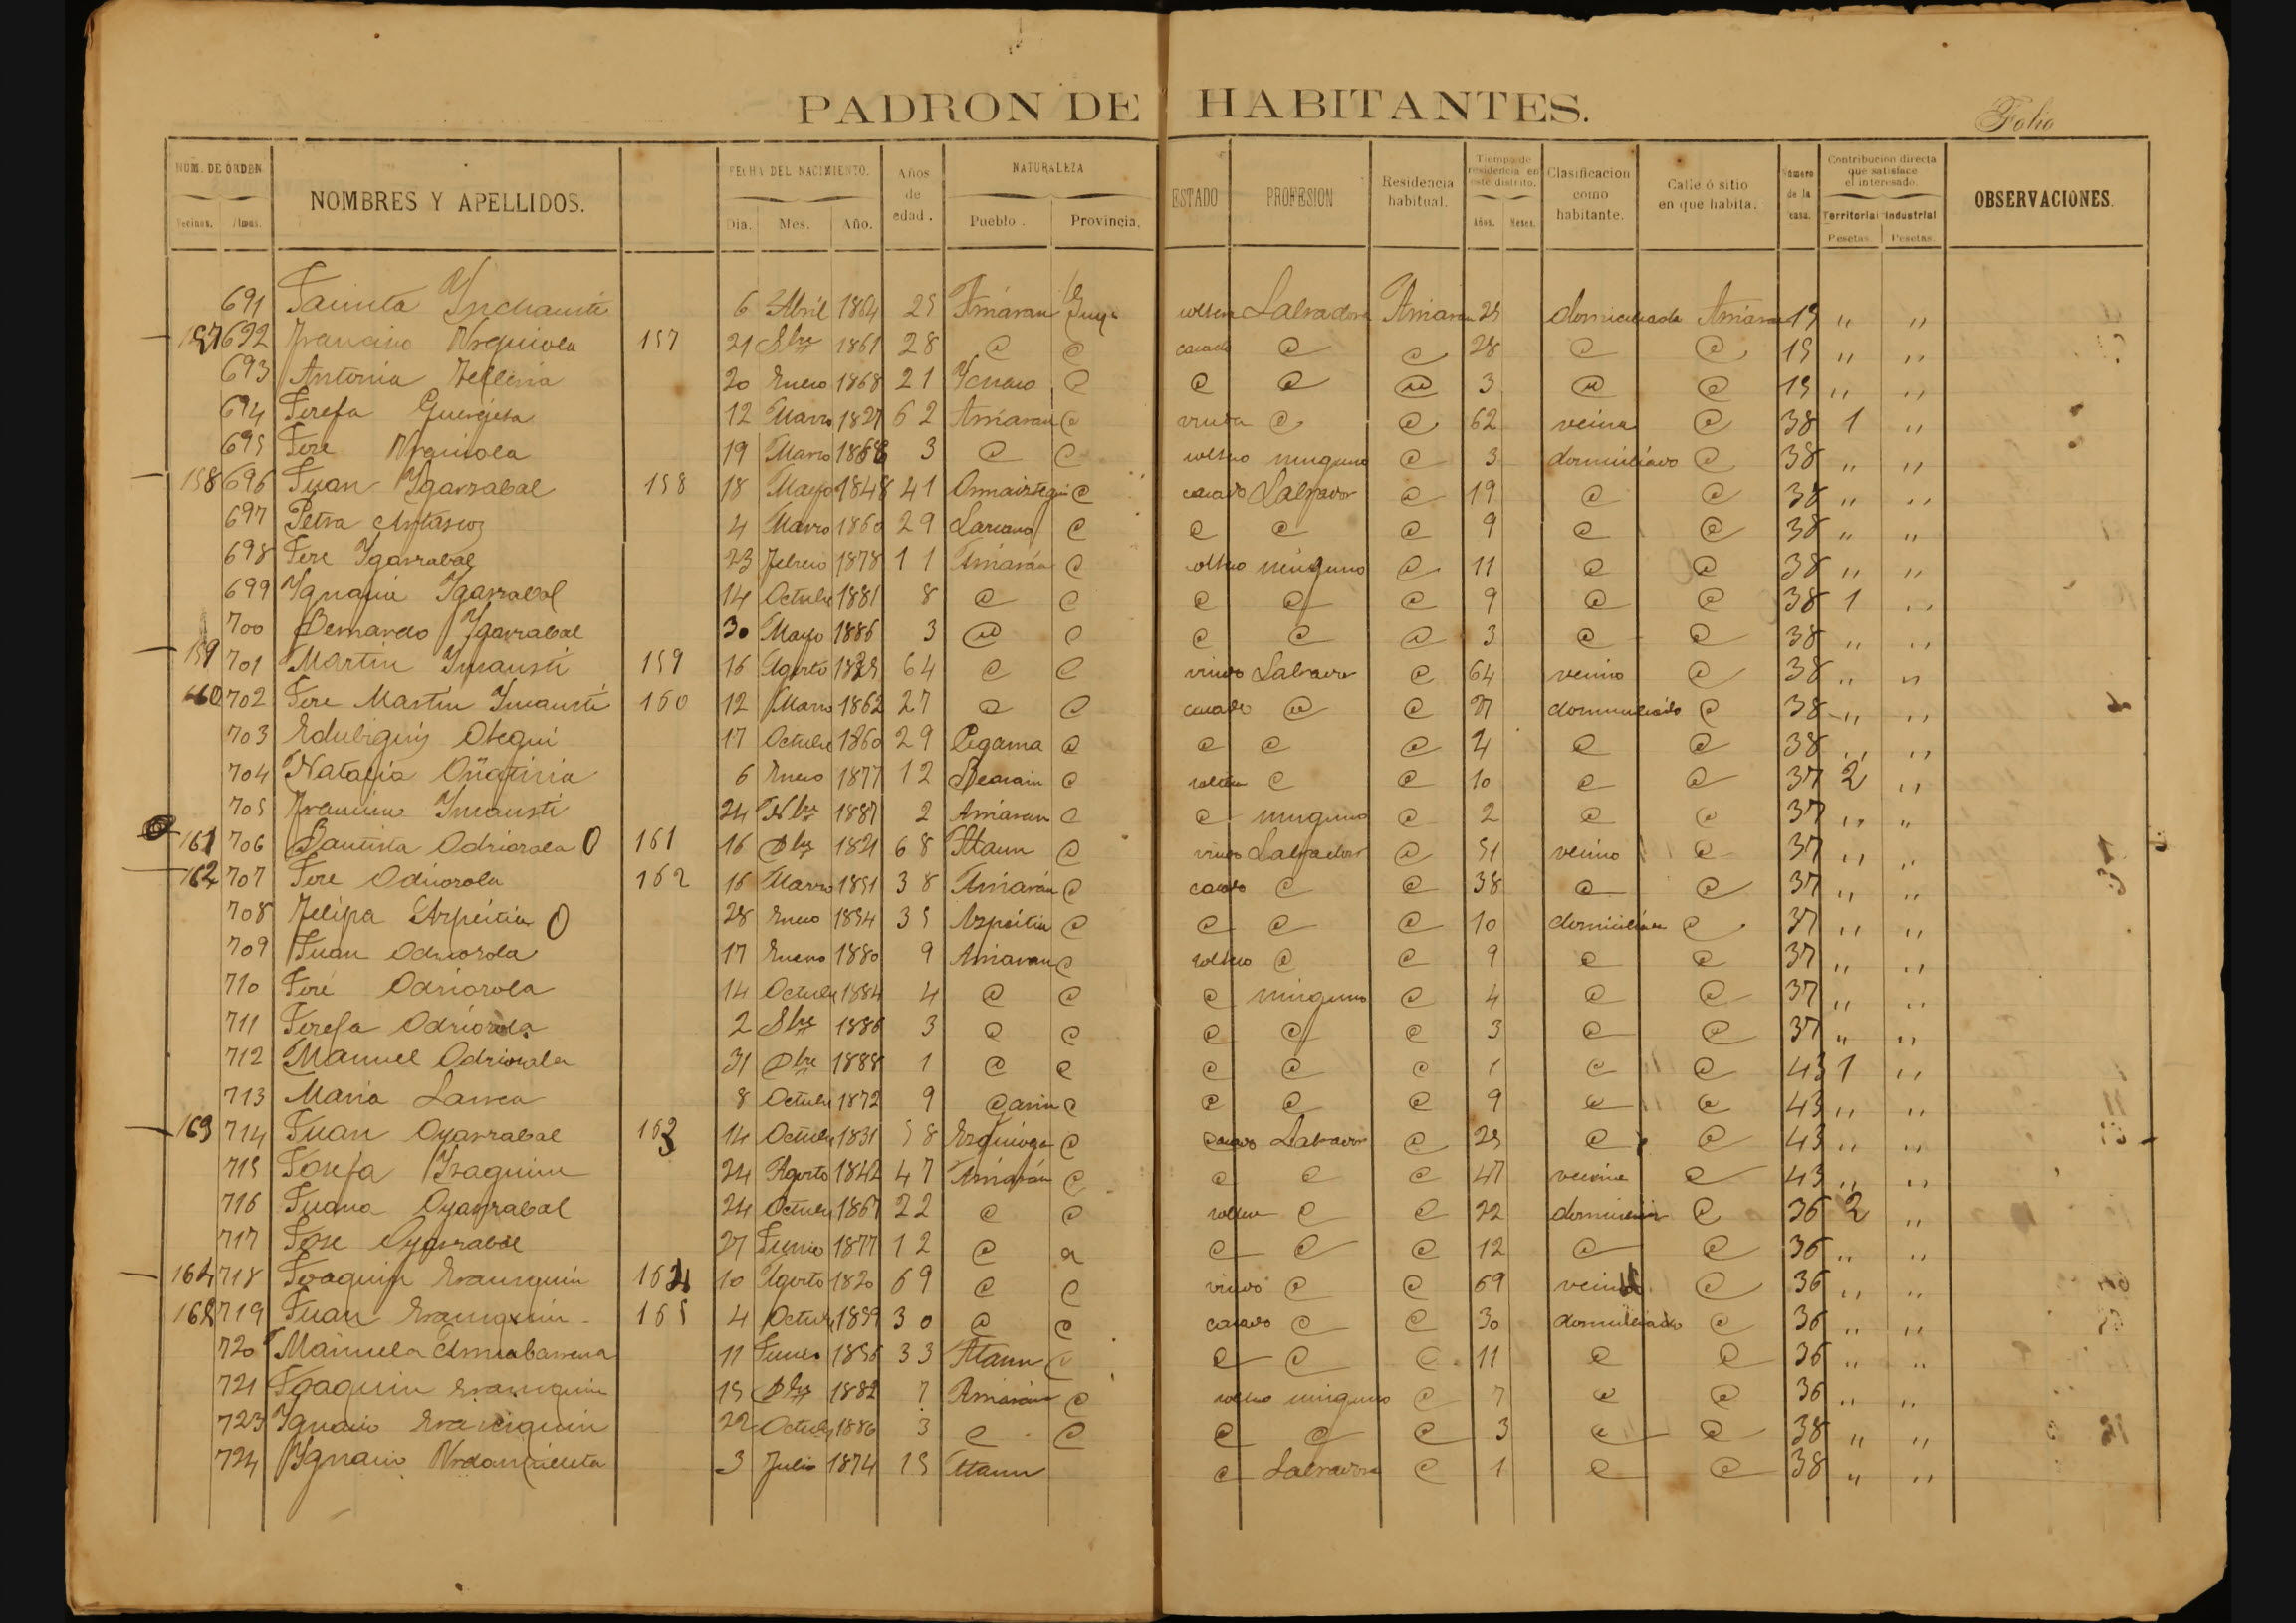 PADRON DE HABITANTES.
Folio
NUM. DE ÓRDEN. NOMBRES Y APELLIDOS. FECHA DEL NACIMIENTO. Años de edad. NATURALEZA ESTADO PROFESION Residencia habitual. Tiempo de residencia en este distrito. Clasificacion como habitante. Calle ó sitio en que habita. Número de la casa. Contribucion directa que satisface el interesado. OBSERVACIONES.
Vecinos. Almas. Dia. Mes. Año. Pueblo. Provincia. Años. Meses. Territorial Industrial
Pesetas. Pesetas.
691 6 Abril 1864 25 soltera Labradora 25 domiciliada 19 " "
157 692 Francisco Urquiola 157 21 Sbre 1861 28 @ @ casado @ @ 28 @ @ 19 " "
693 Antonia Telleria 20 Enero 1868 21 @ @ @ @ 3 @ @ 19 " "
694 12 Marzo 1827 62 @ viuda @ @ 62 vecina @ 38 1 "
695 Jose Urquiola 19 Marzo 3 @ @ soltero ninguno @ 3 domiciliado @ 38 " "
158 696 Juan Ygarzabal 158 18 Mayo 1848 41 Ormaiztegui @ casado Labrador @ 19 @ @ 38 " "
697 Petra 4 Marzo 1860 29 Lazcano @ @ @ @ 9 @ @ 38 " "
698 Jose Ygarzabal 23 Febrero 1878 11 @ soltero ninguno @ 11 @ @ 38 " "
699 Ygnacia Ygarzabal 14 Octubre 1881 8 @ @ @ @ @ 9 @ @ 38 1 "
700 Bernardo Ygarzabal 30 Mayo 1886 3 @ @ @ @ @ 3 @ @ 38 " "
159 701 Martin Ynsausti 159 16 Agosto 64 @ @ viudo Labrador @ 64 vecino @ 38 " "
160 702 Jose Martin Ynsausti 160 12 Marzo 1862 27 @ @ casado @ @ 27 domiciliado @ 38 " "
703 Otegui 17 Octubre 1860 29 @ @ @ @ 2 @ @ 38 " "
704 6 Enero 1877 12 Beasain @ soltera @ @ 10 @ @ 37 2 "
705 Ynsausti 24 Nbre 1887 2 @ @ ninguno @ 2 @ @ 37 " "
161 706 Bautista Odriozola 161 16 Dbre 1821 68 Ataun @ viudo Labrador @ 51 vecino @ 37 " "
162 707 Jose Odriozola 162 16 Marzo 1851 38 @ casado @ @ 38 @ @ 37 " "
708 Felipa Azpeitia 28 Enero 1854 35 Azpeitia @ @ @ @ 10 domiciliada @ 37 " "
709 Juan Odriozola 17 Enero 1880 9 @ soltero @ @ 9 @ @ 37 " "
710 José Odriozola 14 Octubre 1884 4 @ @ @ ninguno @ 4 @ @ 37 " "
711 Josefa Odriozola 2 Sbre 1886 3 @ @ @ @ @ 3 @ @ 37 " "
712 Manuel Odriozola 31 Dbre 1888 1 @ @ @ @ @ 1 @ @ 43 1 "
713 Maria Larrea 8 Octubre 1872 9 @ @ @ @ 9 @ @ 43 " "
163 714 Juan Oyarzabal 163 14 Octubre 1831 58 Ezquioga @ casado Labrador @ 25 @ @ 43 " "
715 Josefa Yzaguirre 24 Agosto 1842 47 @ @ @ @ 47 vecina @ 43 " "
716 Juana Oyarzabal 24 Octubre 1867 22 @ @ soltera @ @ 22 @ 36 2 "
717 Jose Oyarzabal 27 Junio 1877 12 @ @ @ @ @ 12 @ @ 36 " "
164 718 Joaquin Erausquin 164 10 Agosto 1820 69 @ @ viudo @ @ 69 vecino @ 36 " "
165 719 Juan Erausquin 165 4 Octubre 1859 30 @ @ casado @ @ 30 domiciliado @ 36 " "
720 Manuela 11 1856 33 Ataun @ @ @ @ 11 @ @ 36 " "
721 Joaquin Erausquin 15 Dbre 1882 7 @ soltero ninguno @ 7 @ @ 36 " "
723 Ygnacio Erausquin 22 Octubre 1886 3 @ @ @ @ @ 3 @ @ 38 " "
724 Ygnacio Urdangarin 3 Julio 1874 15 Ataun @ Labrador @ 1 @ @ 38 " "